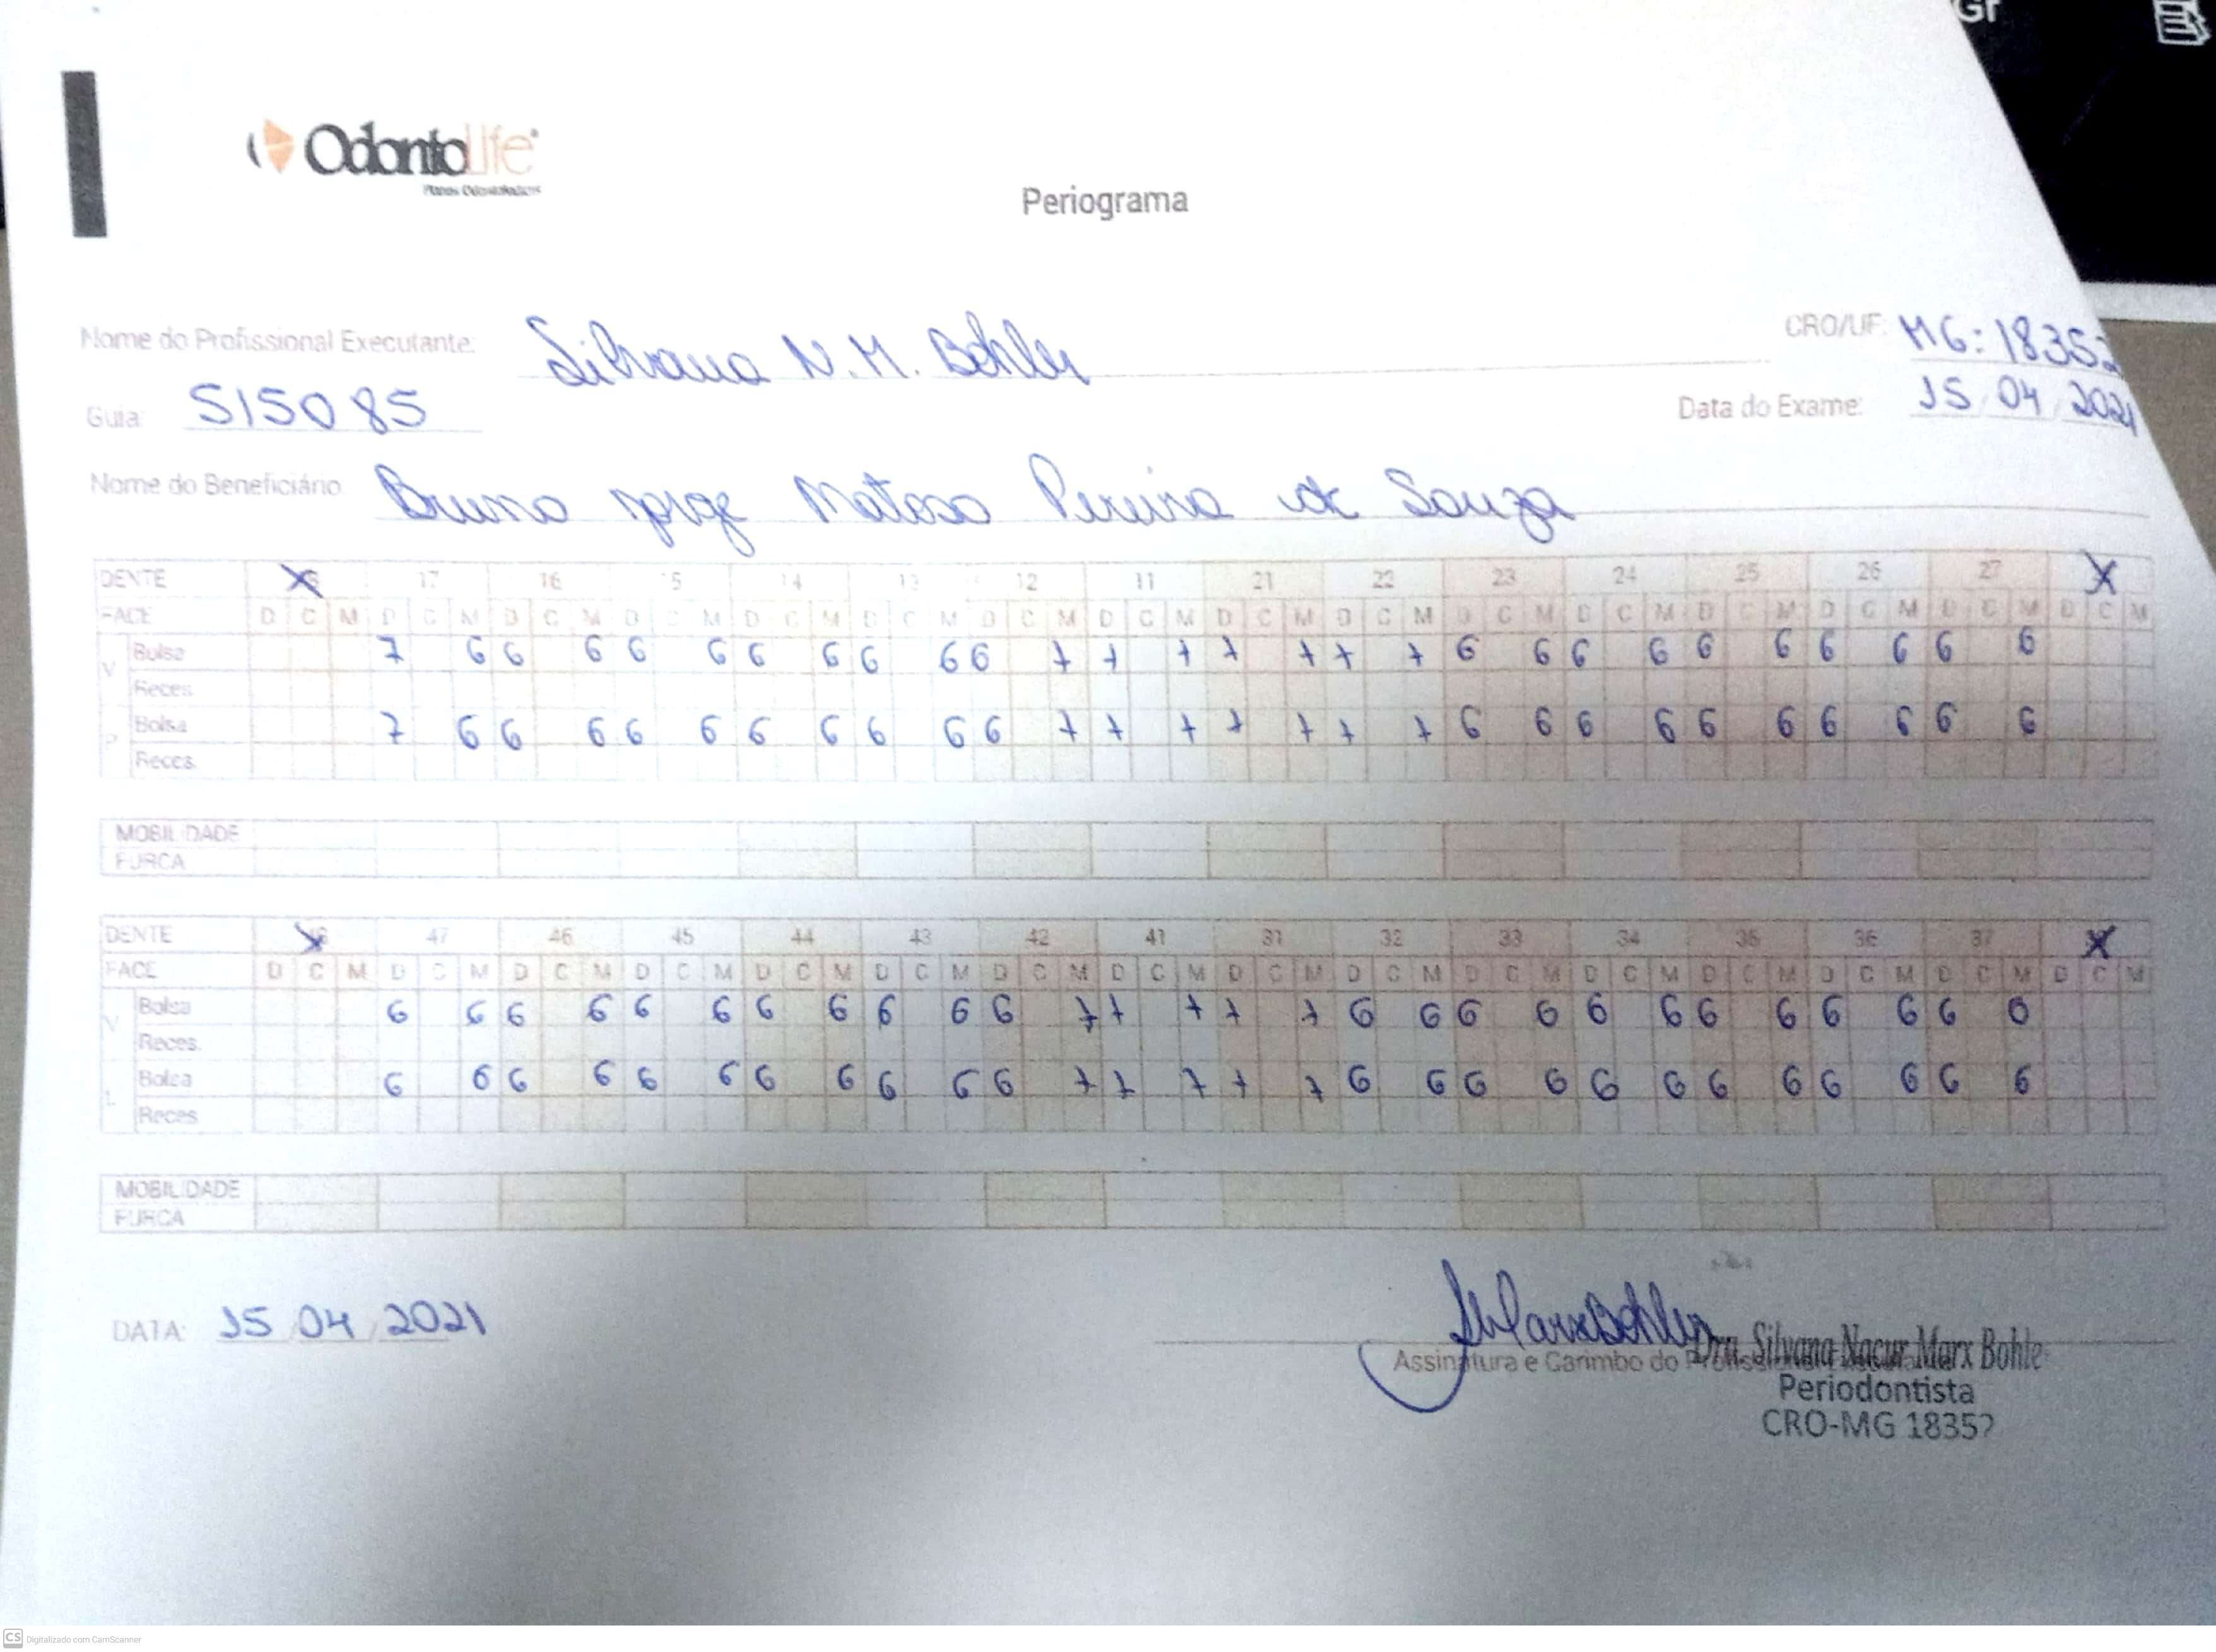 Gr
OdontoLife
Planos Odontológicos
Periograma
Nome do Profissional Executante: Silvana N. M. Bohler CRO/UF: MG: 18352
Guia: 515085 Data do Exame: 15 04 2021
Nome do Beneficiário Bruno Jorge Matoso Pereira de Souza
DENTE 17 16 15 14 13 12 11 21 22 23 24 25 26 27 X
FACE D C M D C M D C M D C M D C M D C M D C M D C M D C M D C M D C M D C M D C M D C M D C M D C M
V Bolsa 7 6 6 6 6 6 6 6 6 6 6 7 7 7 7 7 7 7 6 6 6 6 6 6 6 6 6 6
Reces.
P Bolsa 7 6 6 6 6 6 6 6 6 6 6 7 7 7 7 7 7 7 6 6 6 6 6 6 6 6 6 6
Reces.
MOBILIDADE
FURCA
DENTE 47 46 45 44 43 42 41 31 32 33 34 35 36 37 X
FACE D C M D C M D C M D C M D C M D C M D C M D C M D C M D C M D C M D C M D C M D C M D C M D C M
V Bolsa 6 6 6 6 6 6 6 6 6 6 6 7 7 7 7 7 6 6 6 6 6 6 6 6 6 6 6 6
Reces.
L Bolsa 6 6 6 6 6 6 6 6 6 6 6 7 7 7 7 7 6 6 6 6 6 6 6 6 6 6 6 6
Reces.
MOBILIDADE
FURCA
DATA: 15 04 2021
Assinatura e Carimbo do Dra. Silvana Nacur Marx Bohle
Periodontista
CRO-MG 18352
CS Digitalizado com CamScanner